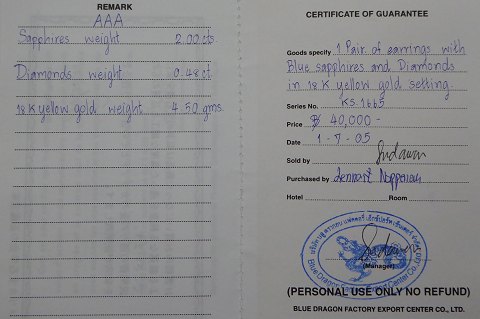 REMARK
AAA
Sapphires weight 2.00 cts.
Diamonds weight 0.48 ct
18K yellow gold weight 4.50 gms.
CERTIFICATE OF GUARANTEE
Goods specify 1 Pair of earrings with
Blue sapphires and Diamonds
in 18 K yellow gold setting
Series No. KS.1665
Price ฿ 40,000-
Date 1-7-05
Sold by
Purchased by Lennart
Hotel Room
(Manager)
(PERSONAL USE ONLY NO REFUND)
BLUE DRAGON FACTORY EXPORT CENTER CO., LTD.